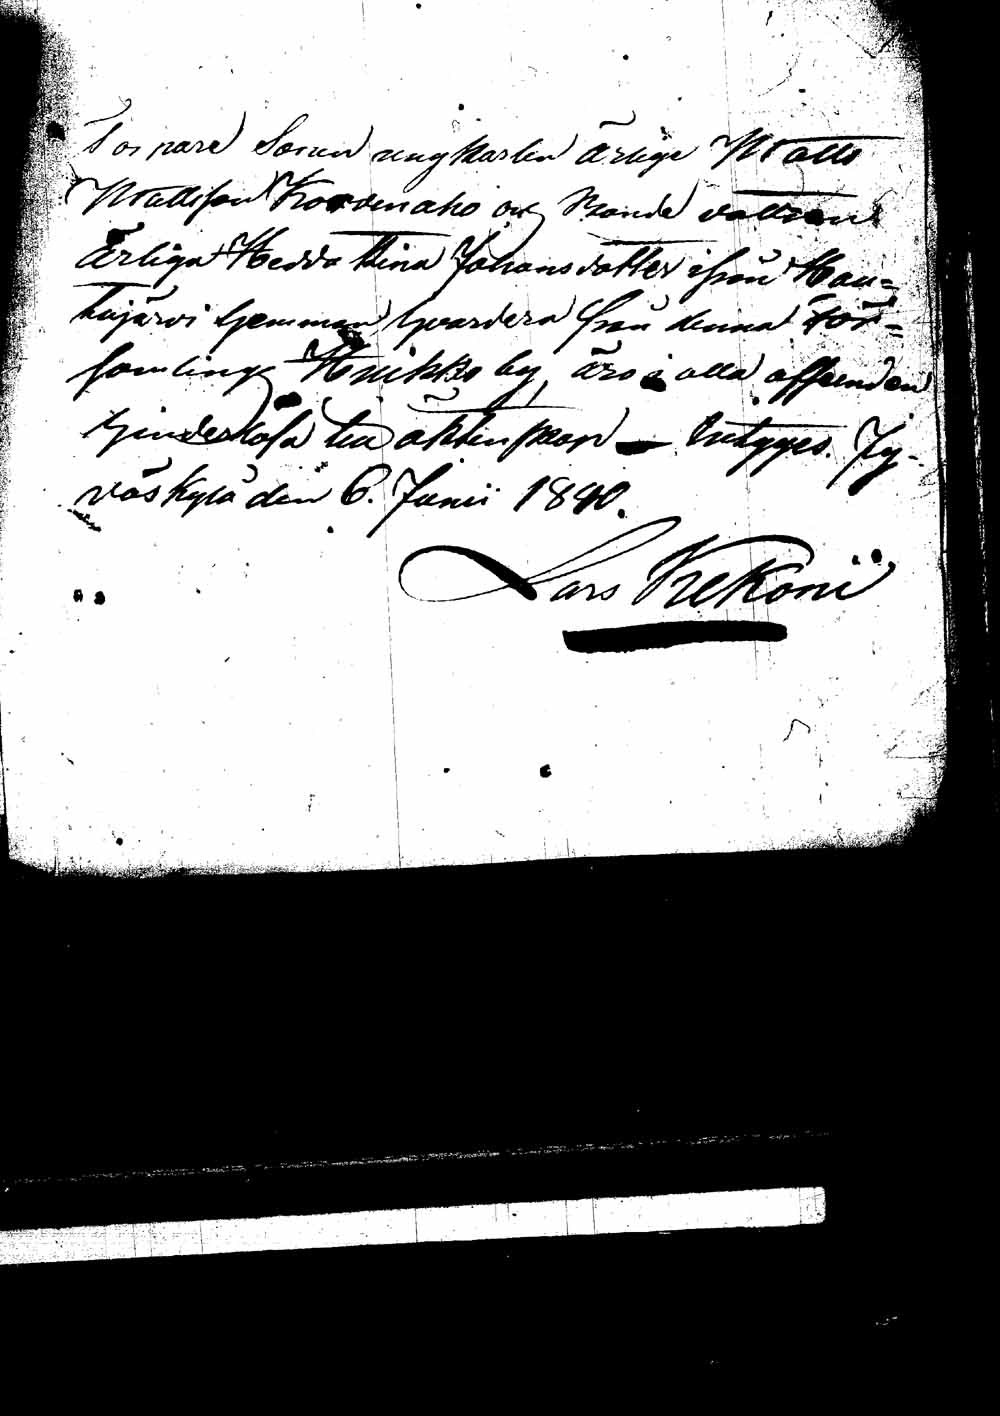 Torpare Sonen ungkarlen ärlige Matts
Mattsson Kordenaho och Bonde dottren
Ärliga Hedda Stina Johansdotter ifrån Hau-
hajärvi hemman hvardera från denna För-
samlings Muikko by, äro i alla afseenden
hinderlösa till äktenskap – betygges. Jy-
väskylä den 6. Junii 1840.
Lars Kekoni